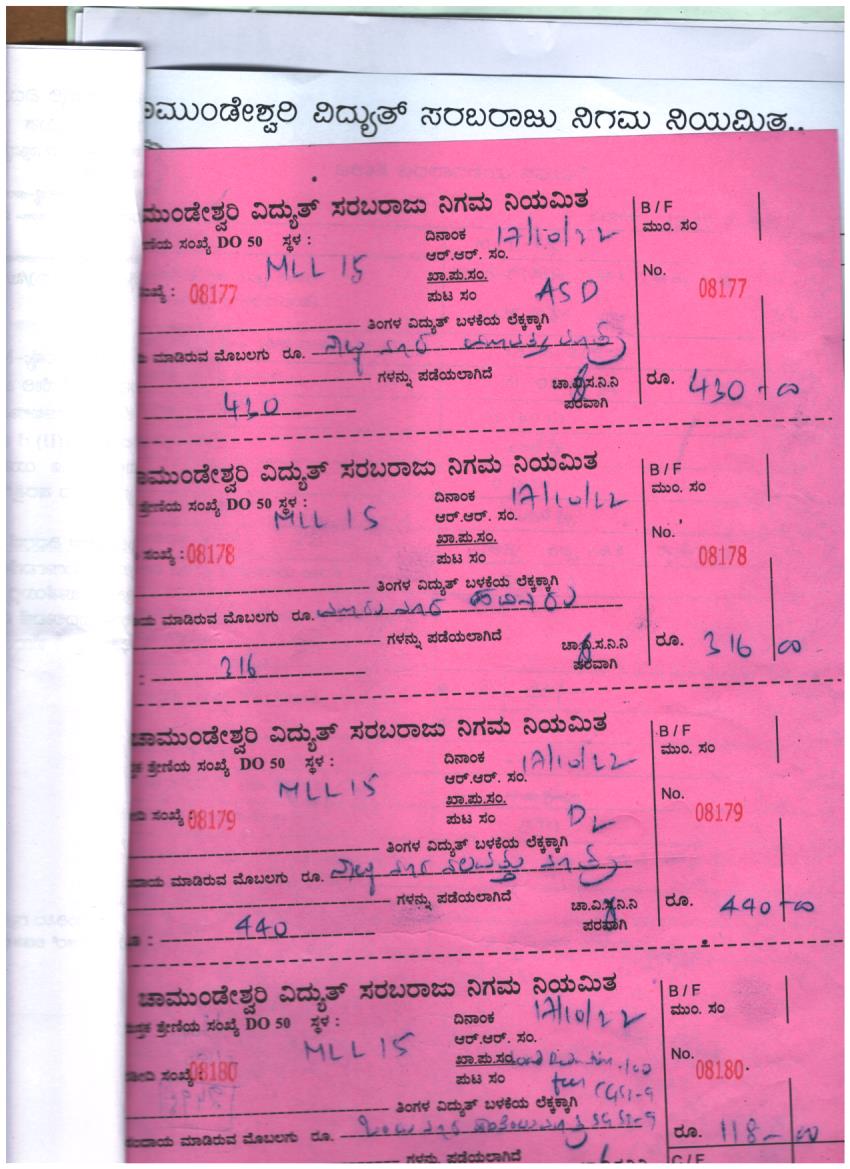 ಾಮುಂಡೇಶ್ವರಿ ವಿದ್ಯುತ್ ಸರಬರಾಜು ನಿಗಮ ನಿಯಮಿತ..
ಮುಂಡೇಶ್ವರಿ ವಿದ್ಯುತ್ ಸರಬರಾಜು ನಿಗಮ ನಿಯಮಿತ B / F
ಣಿಯ ಸಂಖ್ಯೆ DO 50 ಸ್ಥಳ : ದಿನಾಂಕ 17/10/22 ಮುಂ. ಸಂ
MLL 15 ಆರ್.ಆರ್. ಸಂ.
ಖಾ.ಪು.ಸಂ. No.
ಖ್ಯೆ : 08177 ಪುಟ ಸಂ ASD 08177
ತಿಂಗಳ ವಿದ್ಯುತ್ ಬಳಕೆಯ ಲೆಕ್ಕಕ್ಕಾಗಿ
ಯ ಮಾಡಿರುವ ಮೊಬಲಗು ರೂ. ನಾಲ್ಕು ನೂರ ಮೂವತ್ತು ಮಾತ್ರ
ಗಳನ್ನು ಪಡೆಯಲಾಗಿದೆ ಚಾ.ವಿ.ಸ.ನಿ.ನಿ ರೂ. 430-00
430 ಪರವಾಗಿ
ಾಮುಂಡೇಶ್ವರಿ ವಿದ್ಯುತ್ ಸರಬರಾಜು ನಿಗಮ ನಿಯಮಿತ B / F
ಶ್ರೇಣಿಯ ಸಂಖ್ಯೆ DO 50 ಸ್ಥಳ : ದಿನಾಂಕ 17/10/22 ಮುಂ. ಸಂ
MLL 15 ಆರ್.ಆರ್. ಸಂ.
ಖಾ.ಪು.ಸಂ. No.
ಸಂಖ್ಯೆ : 08178 ಪುಟ ಸಂ 08178
ತಿಂಗಳ ವಿದ್ಯುತ್ ಬಳಕೆಯ ಲೆಕ್ಕಕ್ಕಾಗಿ
ಾಯ ಮಾಡಿರುವ ಮೊಬಲಗು ರೂ. ಮೂರು ನೂರ ಹದಿನಾರು
ಗಳನ್ನು ಪಡೆಯಲಾಗಿದೆ ಚಾ.ವಿ.ಸ.ನಿ.ನಿ ರೂ. 316 00
: 316 ಪರವಾಗಿ
ಚಾಮುಂಡೇಶ್ವರಿ ವಿದ್ಯುತ್ ಸರಬರಾಜು ನಿಗಮ ನಿಯಮಿತ B / F
ಕ ಶ್ರೇಣಿಯ ಸಂಖ್ಯೆ DO 50 ಸ್ಥಳ : ದಿನಾಂಕ 17/10/22 ಮುಂ. ಸಂ
MLL 15 ಆರ್.ಆರ್. ಸಂ.
ಖಾ.ಪು.ಸಂ. No.
ದಿ ಸಂಖ್ಯೆ : 08179 ಪುಟ ಸಂ DL 08179
ತಿಂಗಳ ವಿದ್ಯುತ್ ಬಳಕೆಯ ಲೆಕ್ಕಕ್ಕಾಗಿ
ಂದಾಯ ಮಾಡಿರುವ ಮೊಬಲಗು ರೂ. ನಾಲ್ಕು ನೂರ ನಲವತ್ತು ಮಾತ್ರ
ಗಳನ್ನು ಪಡೆಯಲಾಗಿದೆ ಚಾ.ವಿ.ಸ.ನಿ.ನಿ ರೂ. 440-00
: 440 ಪರವಾಗಿ
ಚಾಮುಂಡೇಶ್ವರಿ ವಿದ್ಯುತ್ ಸರಬರಾಜು ನಿಗಮ ನಿಯಮಿತ B / F
ಸ್ತಕ ಶ್ರೇಣಿಯ ಸಂಖ್ಯೆ DO 50 ಸ್ಥಳ : ದಿನಾಂಕ 17/10/22 ಮುಂ. ಸಂ
MLL 15 ಆರ್.ಆರ್. ಸಂ.
ಖಾ.ಪು.ಸಂ. No.
ಸಂಖ್ಯೆ : 08180 ಪುಟ ಸಂ CGST-9 08180
ತಿಂಗಳ ವಿದ್ಯುತ್ ಬಳಕೆಯ ಲೆಕ್ಕಕ್ಕಾಗಿ
ಸಂದಾಯ ಮಾಡಿರುವ ಮೊಬಲಗು ರೂ. ಒಂದು ನೂರ ಹದಿನೆಂಟು ಮಾತ್ರ SGST-9 ರೂ. 118-00
ಗಳನ್ನು ಪಡೆಯಲಾಗಿದೆ C / F